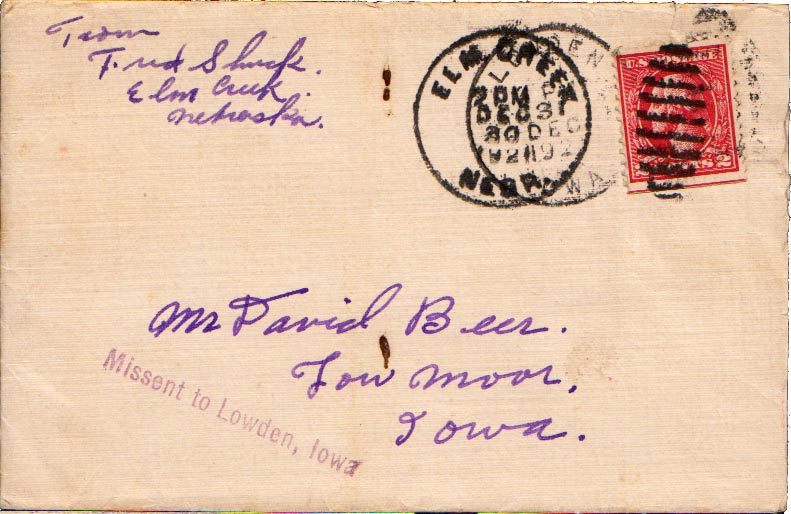 From
Fred Shuck.
Elm Creek.
Nebraska.
ELM CREEK
DEC
30
192
NEBR.
DEC
U.S. POSTAGE
2
Mr David Beer.
Low Moor,
Iowa.
Missent to Lowden, Iowa